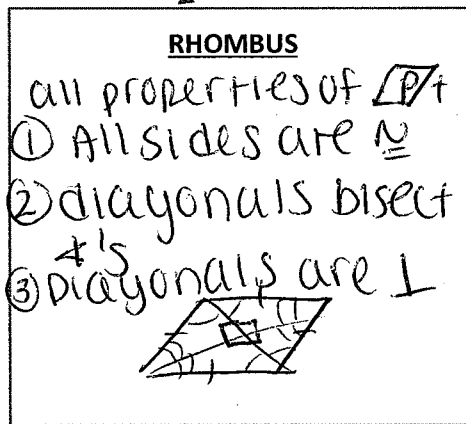 RHOMBUS
all properties of ▱P +
① All sides are ≅
② diagonals bisect
∡'s
③ Diagonals are ⊥